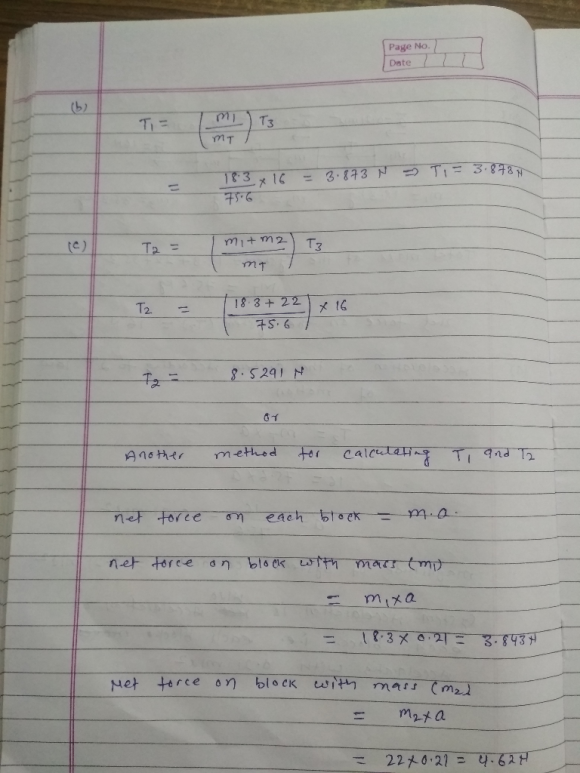 Page No.
Date
(b)
T1 = (m1/mT) T3
= 18.3/75.6 × 16 = 3.873 N ⇒ T1 = 3.873 N
(c) T2 = (m1+m2/mT) T3
T2 = (18.3+22/75.6) × 16
T2 = 8.5291 N
or
Another method for calculating T1 and T2
net force on each block = m.a.
net force on block with mass (m1)
= m1×a
= 18.3 × 0.21 = 3.843 N
Net force on block with mass (m2)
= m2×a
= 22×0.21 = 4.62 N